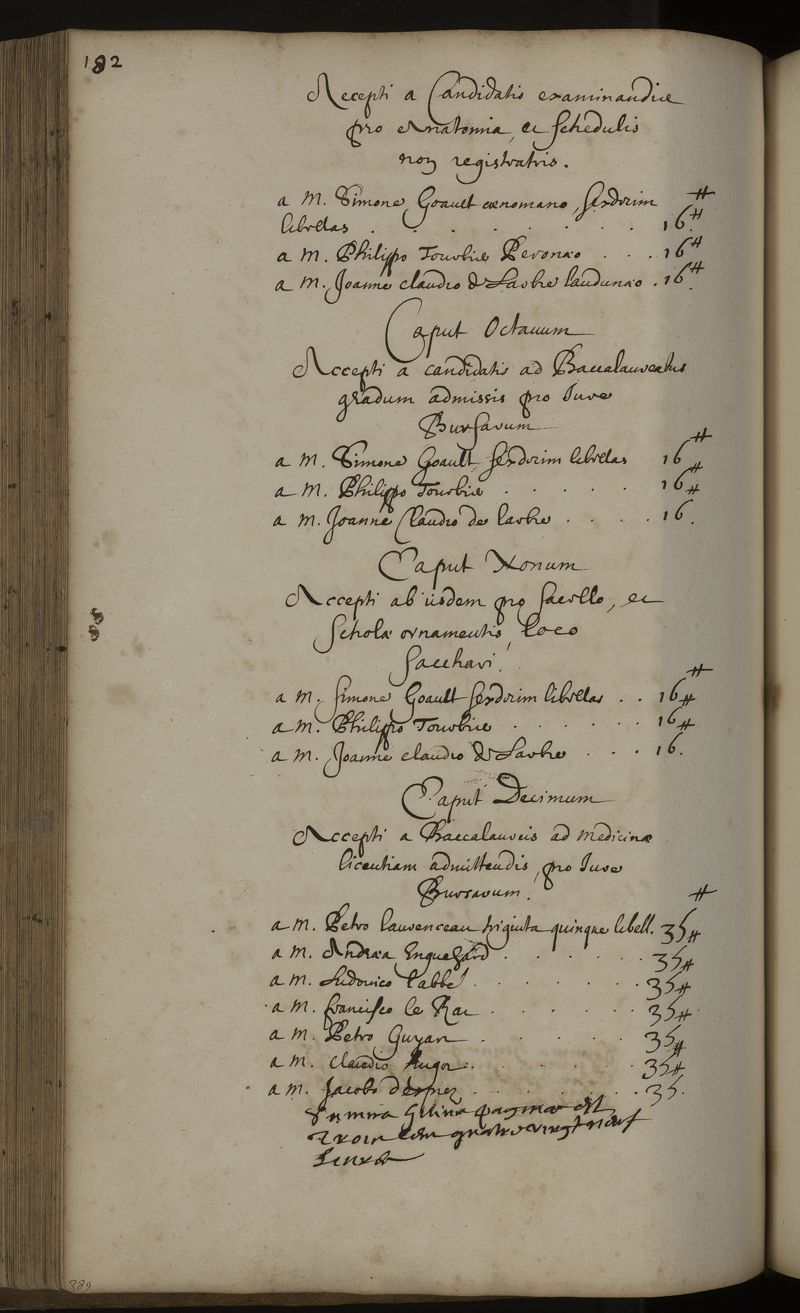 182
Accepti a Candidatis examinandis
pro Anatomia, et schedulis
non registratis.
a M. Simone Goault cænomano, sexdecim ⁂
libellas . . . . . . . . 16 ⁂
a M. Philippo Tourbie Peronæo . . . 16 ⁂
a M. Joanne claudio de Larbre laudunæo . 16 ⁂
Caput Octauum
Accepti a candidatis ad Baccalaureatus
gradum admissis pro Jure
Bursarum
a M. Simone Goault sexdecim libellas 16 ⁂
a M. Philippo Tourbie . . . . . 16 ⁂
a M. Joanne Claudio de larbre . . . . 16.
Caput Nonum
Accepti ab iisdem pro sacello, et
Scholæ ornamentis, loco
sacchari.
a M. Simone Goault sexdecim libellas . . 16 ⁂
a M. Philippo Tourbie . . . . . . 16 ⁂
a M. Joanne claudio de Larbre . . . 16.
Caput Decimum
Accepti a Baccalaureis ad medicinæ
licentiam admittendis, pro Jure
Bursarum.
a M. Petro laurenceau triginta quinque libell. 35 ⁂
a M. Andræa Enguehard . . . . . . 35 ⁂
a M. Ludovico labbé . . . . . . . 35 ⁂
a M. francisco le Rat . . . . . . 35 ⁂
a M. Petro Guyan . . . . . . 35 ⁂
a M. Claudio Auger . . . . . . 35 ⁂
a M. Jacobo desprez . . . . . . . 35.
Summa paginæ est
Trois cens quatre vingt neuf
Liures
389